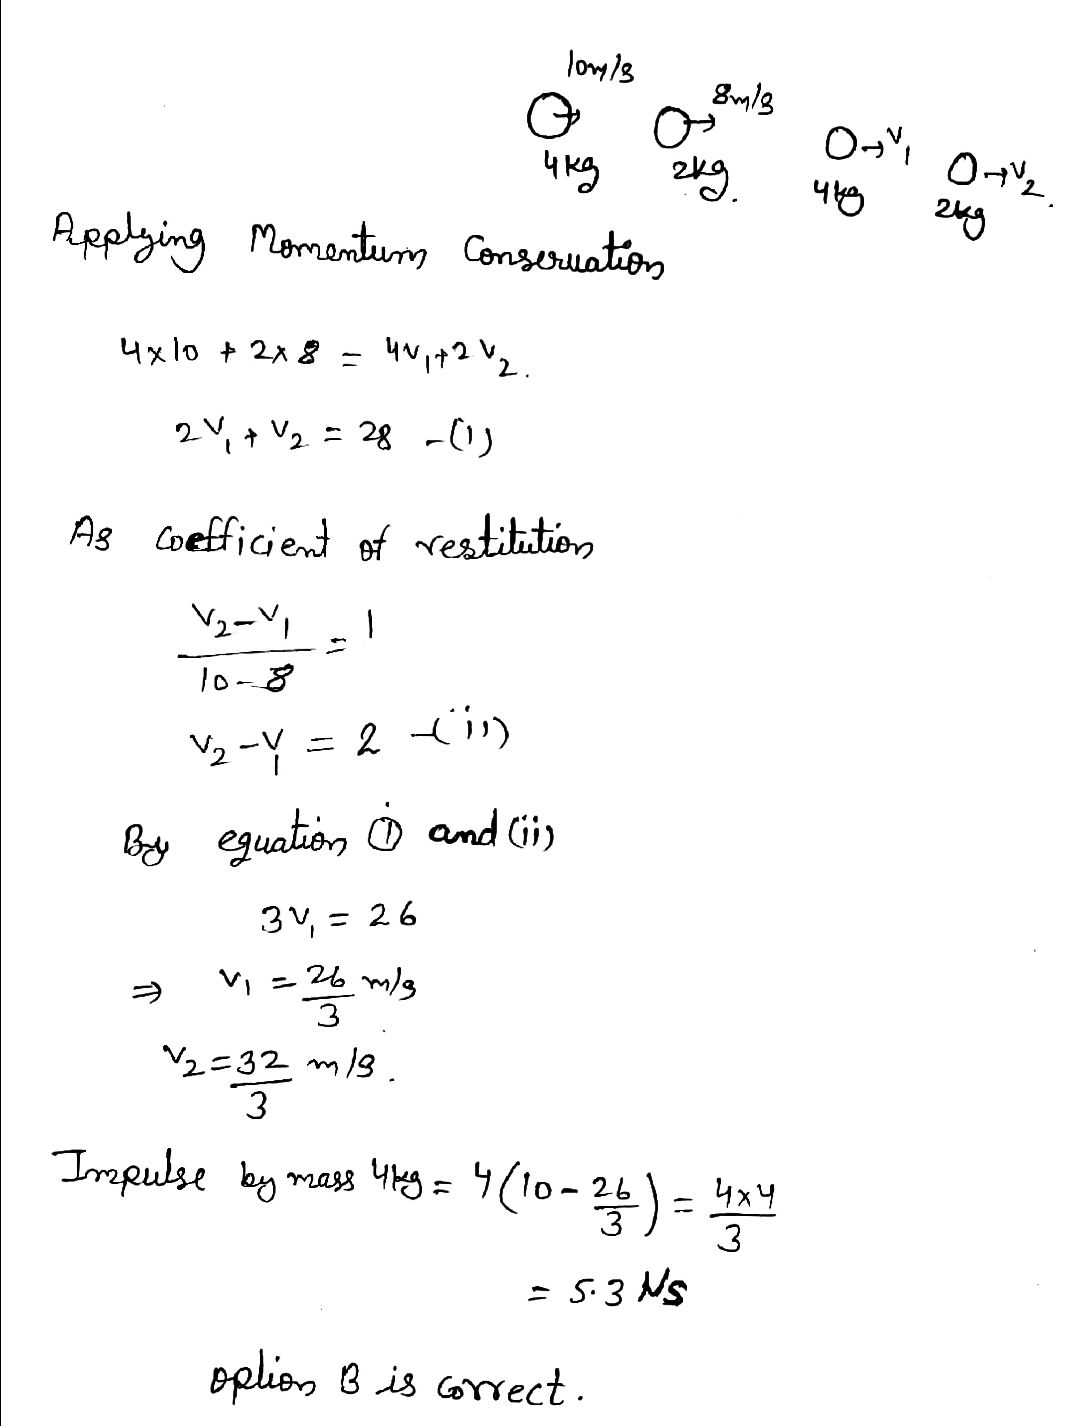 10m/s
8m/s
4kg
2kg.
→v₁
4kg
→v₂.
2kg
Applying Momentum Conservation
4×10 + 2×8 = 4v₁+2v₂.
2v₁+v₂ = 28 -(1)
As coefficient of restitution
(v₂-v₁)/(10-8) = 1
v₂-v₁ = 2 -(ii)
By equation (i) and (ii)
3v₁ = 26
⇒ v₁ = 26/3 m/s
v₂ = 32/3 m/s.
Impulse by mass 4kg = 4(10 - 26/3) = 4×4/3
= 5.3 Ns
option B is correct.